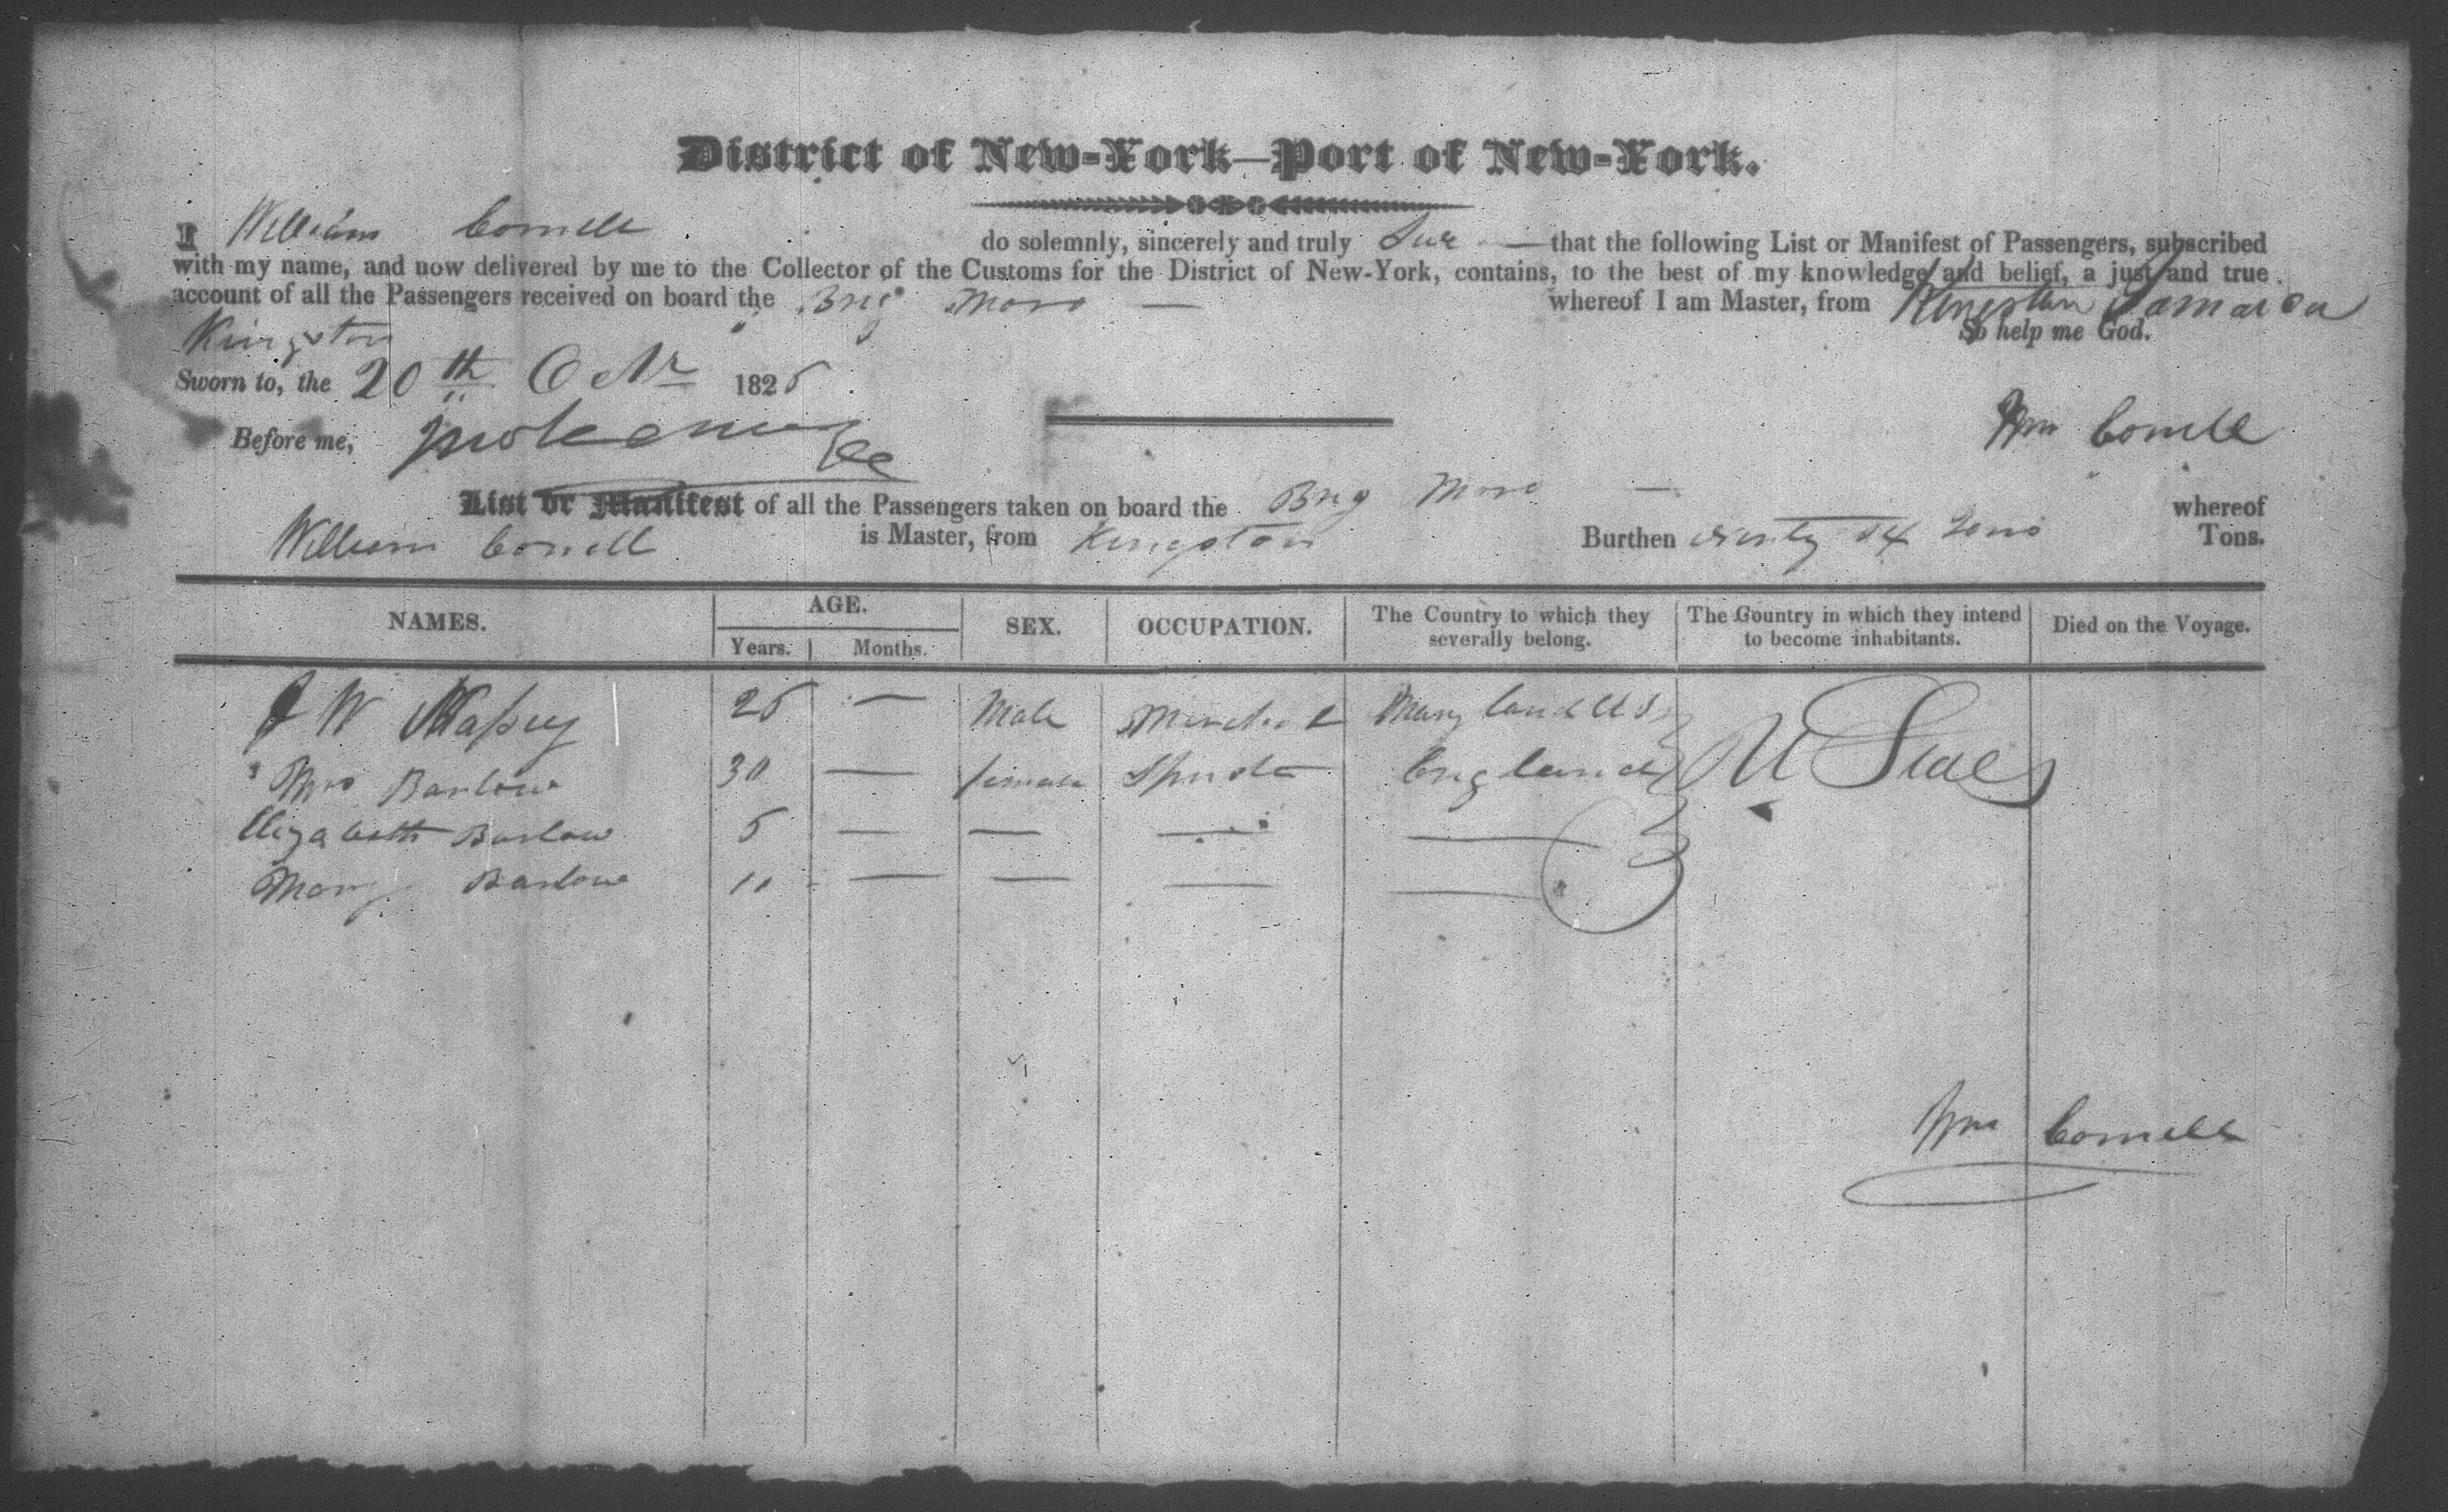 District of New-York—Port of New-York.
I William Cornell do solemnly, sincerely and truly that the following List or Manifest of Passengers, subscribed
with my name, and now delivered by me to the Collector of the Customs for the District of New-York, contains, to the best of my knowledge and belief, a just and true
account of all the Passengers received on board the Brig Moro — whereof I am Master, from Kingston Jamaica
Kingston So help me God.
Sworn to, the 20th Octr 1825
Before me, Wm Cornell
List or Manifest of all the Passengers taken on board the Brig Moro — whereof
William Cornell is Master, from Kingston Burthen Tons Tons.
NAMES. AGE. SEX. OCCUPATION. The Country to which they severally belong. The Country in which they intend to become inhabitants. Died on the Voyage.
Years. Months.
J W Massey 25 — Male Merchant Maryland U S U States
Mrs Barlow 30 — female England
Elizabeth Barlow 5 — — — —
Mary Barlow 11 — — — —
Wm Cornell